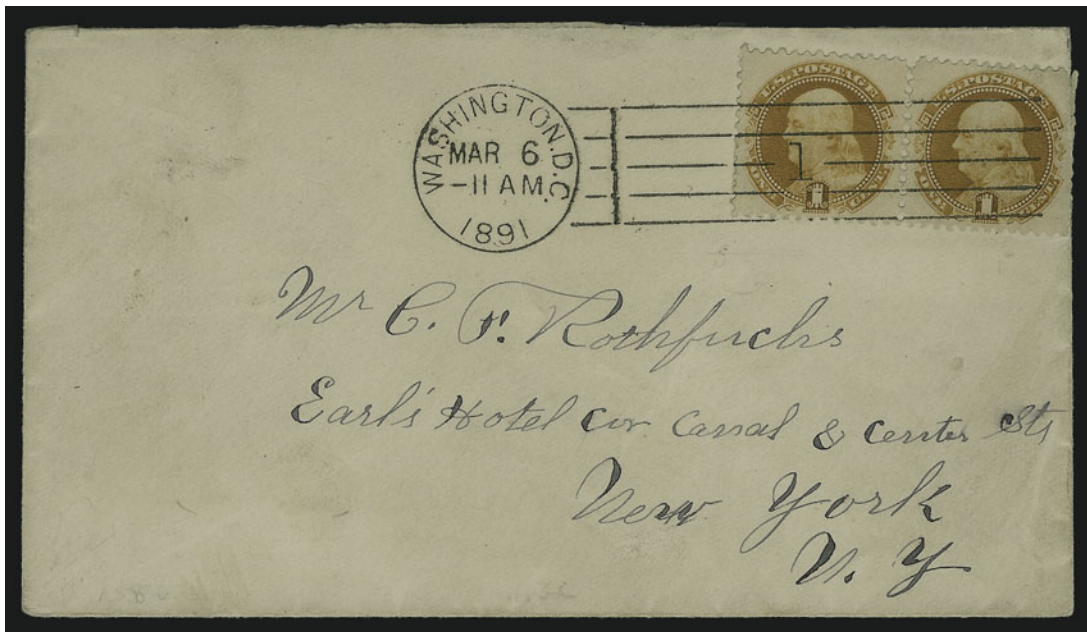 WASHINGTON. D.C.
MAR 6
-11 AM
1891
1
U.S. POSTAGE
ONE CENT
1
U.S. POSTAGE
ONE CENT
1
Mr C. F. Rothfuchs
Earl's Hotel cor. Canal & Center Sts
New York
N. Y